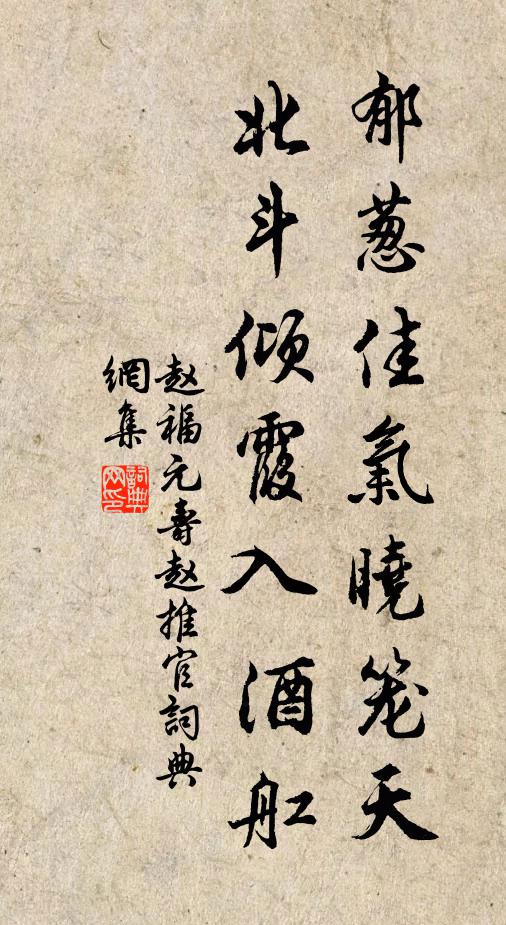 郁葱佳氣曉笼天
北斗倾霞入酒舡
赵福元壽赵推官詞典
網集
詞典網印